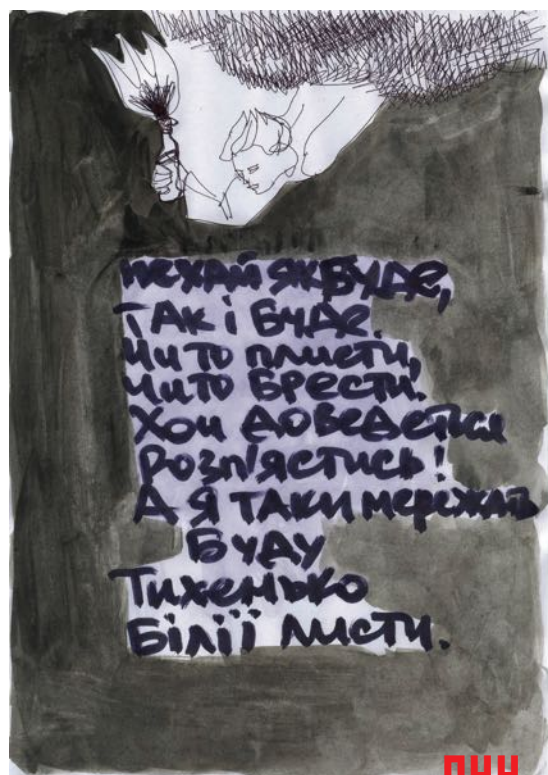 нехай як буде,
так і буде.
Чи то плисти,
чи то брести.
Хоч доведеться
розп'ястись!
А я таки мережать
буду
Тихенько
білії листи.